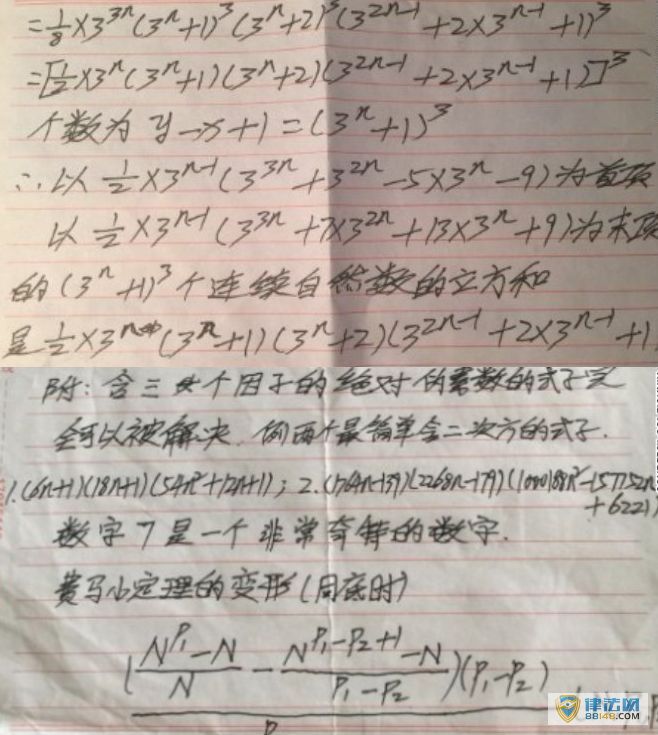 =1/8×3^{3n}(3^n+1)^3(3^n+2)^3(3^{2n-1}+2×3^{n-1}+1)^3
=[1/2×3^n(3^n+1)(3^n+2)(3^{2n-1}+2×3^{n-1}+1)]^3
个数为 y-x+1=(3^n+1)^3
∴以 1/2×3^{n-1}(3^{3n}+3^{2n}-5×3^n-9)为首项
以 1/2×3^{n-1}(3^{3n}+7×3^{2n}+13×3^n+9)为末项
的(3^n+1)^3个连续自然数的立方和
是1/2×3^n(3^n+1)(3^n+2)(3^{2n-1}+2×3^{n-1}+1
附:含三个因子的绝对伪素数的式子完
全可以被解决,例两个最简单含二次方的式子.
1.(6n+1)(18n+1)(54n²+12n+1); 2.(1764n-139)(2268n-179)(1000188n²-157752n
+6221)
数字7是一个非常奇特的数字.
费马小定理的变形(同底时)
((N^{P₁}-N)/N - (N^{P₁-P₂+1}-N)/(P₁-P₂))(P₁-P₂)
律法网
88148.com